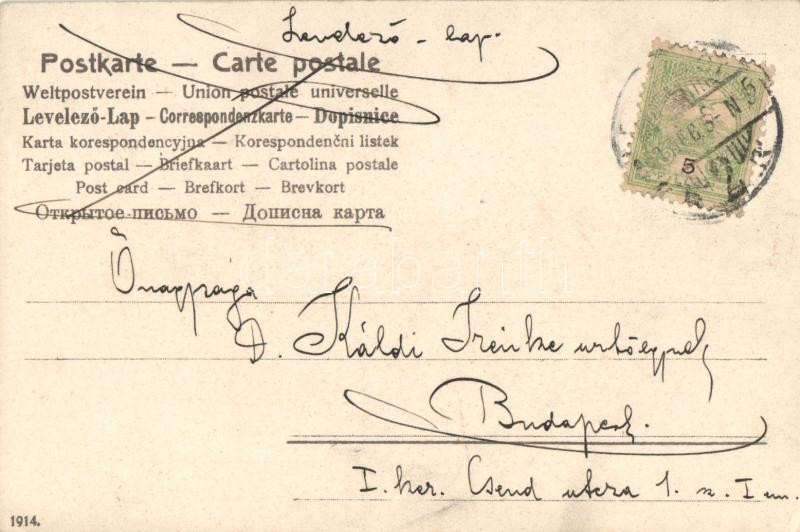 Levelező-lap.
Postkarte — Carte postale
Weltpostverein — Union postale universelle
Levelező-Lap – Correspondenzkarte – Dopisnice
Karta korespondencyjna — Korespondenčni listek
Tarjeta postal — Briefkaart — Cartolina postale
Post card — Brefkort — Brevkort
Открытое письмо — Дописна карта
5
Őnagysága
D. Káldi Irénke urhölgynek
Budapest.
I. ker. Csend utcza 1. sz. I em.
1914.
darabanth